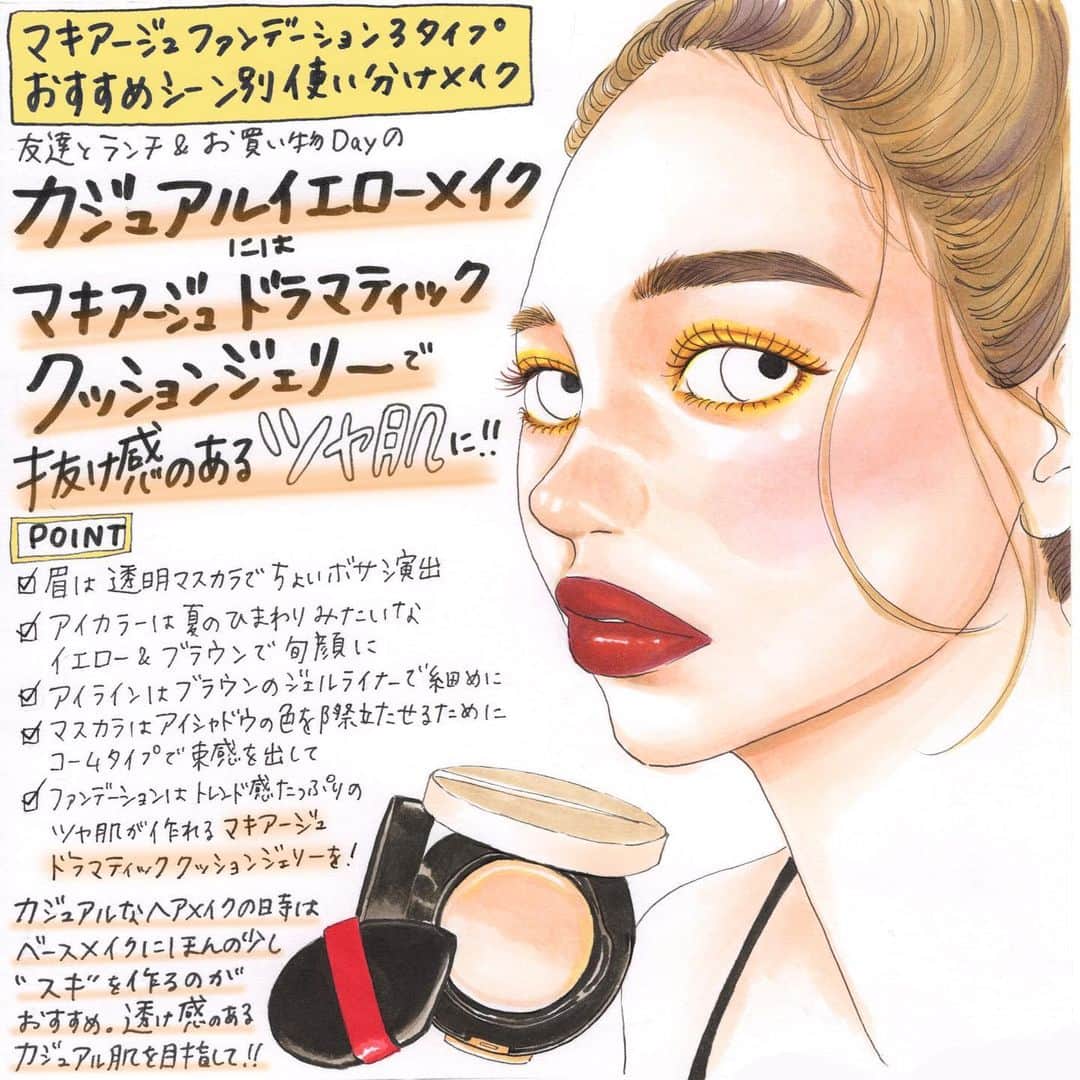 マキアージュファンデーション3タイプ
おすすめシーン別使い分けメイク
友達とランチ&お買い物Dayの
カジュアルイエローメイク
には
マキアージュドラマティック
クッションジェリーで
抜け感のあるツヤ肌に!!
POINT
☑眉は透明マスカラでちょいボサ演出
☑アイカラーは夏のひまわりみたいな
イエロー&ブラウンで旬顔に
☑アイラインはブラウンのジェルライナーで細めに
☑マスカラはアイシャドウの色を際立たせるために
コームタイプで束感を出して
☑ファンデーションはトレンド感たっぷりの
ツヤ肌が作れるマキアージュ
ドラマティッククッションジェリーを!
カジュアルなヘアメイクの日寺は
ベースメイクにほんの少し
"スキ"を作るのが
おすすめ。透け感のある
カジュアル肌を目指して!!